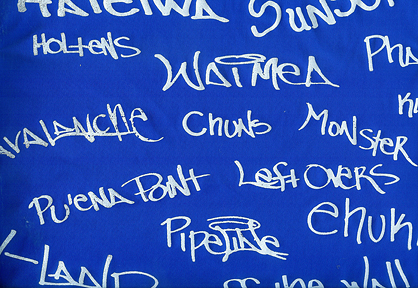 HALEIWA SUNSET
HOLTENS
WAIMEA
AVALANCHE CHUNS MONSTER
PU'ENA POINT LEFTOVERS
PIPELINE EHUK
LAND
OFF the WALL